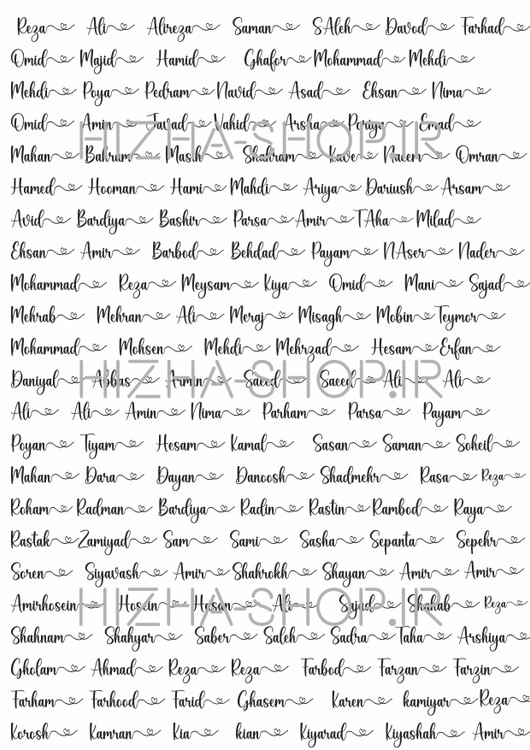 Reza Ali Alireza Saman SAleh Davod Farhad
Omid Majid Hamid Ghafor Mohammad Mehdi
Mehdi Poya Pedram Navid Asad Ehsan Nima
Omid Amin Javad Vahid Arsha Poriya Emad
HIZHA-SHOP.IR
Mahan Bahram Masih Shahram Kave Naeem Omran
Hamed Hooman Hami Mahdi Ariya Dariush Arsam
Avid Bardiya Bashir Parsa Amir TAha Milad
Ehsan Amir Barbod Behdad Payam NAser Nader
Mohammad Reza Meysam Kiya Omid Mani Sajad
Mehrab Mehran Ali Meraj Misagh Mobin Teymor
Mohammad Mohsen Mehdi Mehrzad Hesam Erfan
Daniyal Abbas Armin Saeed Saeed Ali Ali
HIZHA-SHOP.IR
Ali Ali Amin Nima Parham Parsa Payam
Poyan Tiyam Hesam Kamal Sasan Saman Soheil
Mahan Dara Dayan Danoosh Shadmehr Rasa Reza
Roham Radman Bardiya Radin Rastin Rambod Raya
Rastak Zamiyad Sam Sami Sasha Sepanta Sepehr
Soren Siyavash Amir Shahrokh Shayan Amir Amir
Amirhosein Hosein Hasan Ali Sajad Shahab Reza
HIZHA-SHOP.IR
Shahnam Shahyar Saber Saleh Sadra Taha Arshiya
Gholam Ahmad Reza Reza Farbod Farzan Farzin
Farham Farhood Farid Ghasem Karen kamiyar Reza
Korosh Kamran Kia kian Kiyarad Kiyashah Amir